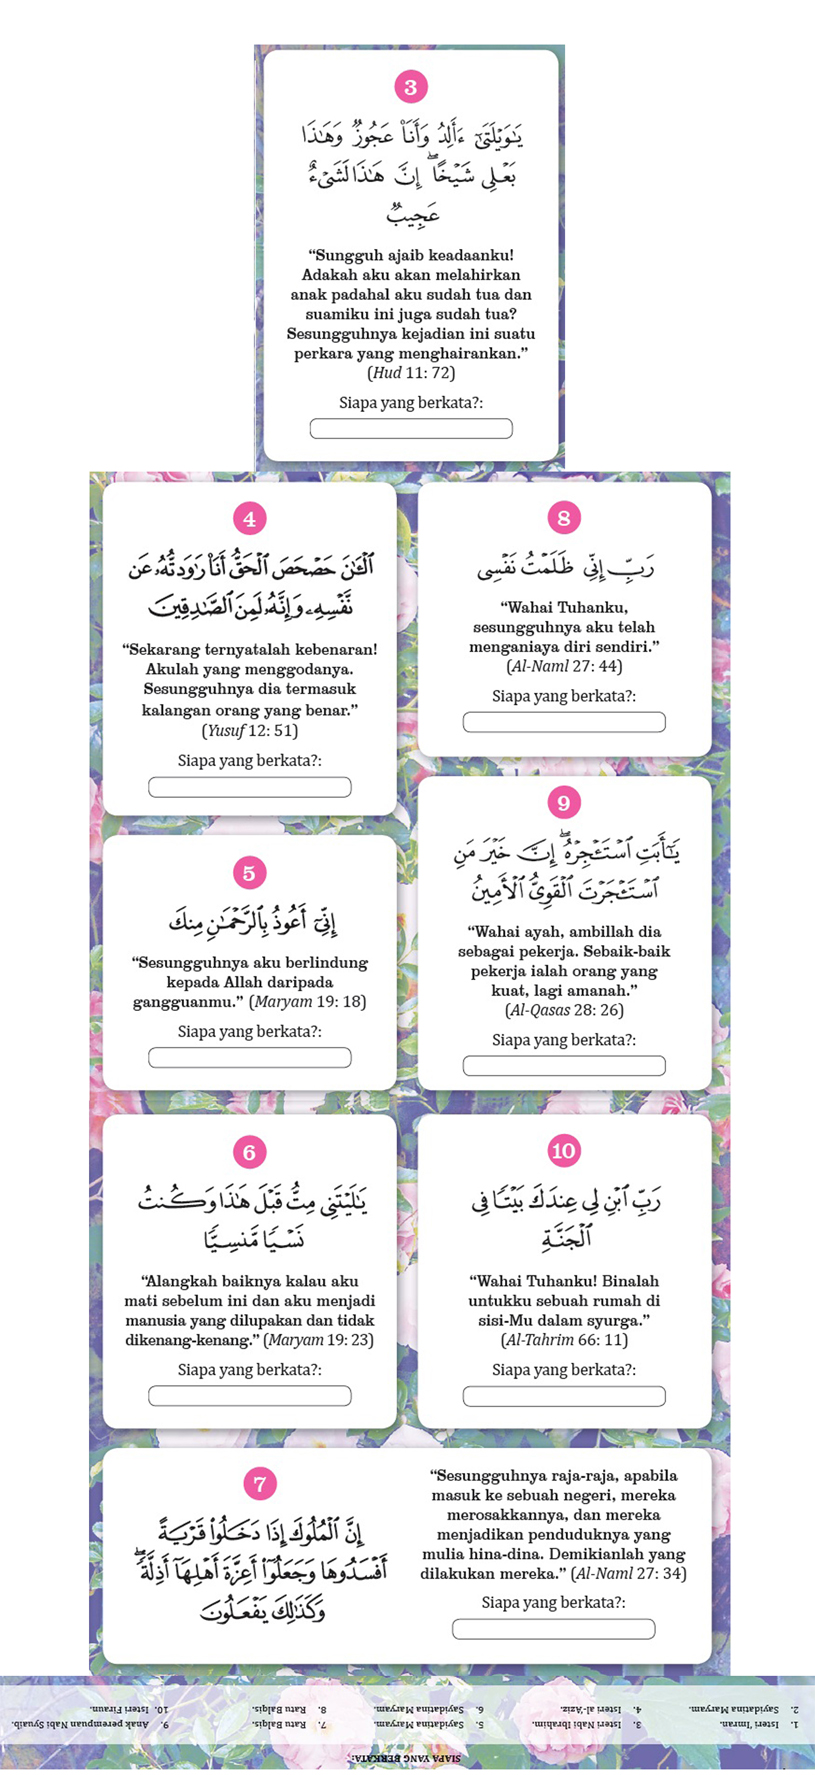 3
يَـٰوَيْلَتَىٰٓ ءَأَلِدُ وَأَنَا۠ عَجُوزٌ وَهَـٰذَا
بَعْلِى شَيْخًا ۖ إِنَّ هَـٰذَا لَشَىْءٌ
عَجِيبٌ
“Sungguh ajaib keadaanku!
Adakah aku akan melahirkan
anak padahal aku sudah tua dan
suamiku ini juga sudah tua?
Sesungguhnya kejadian ini suatu
perkara yang menghairankan.”
(Hud 11: 72)
Siapa yang berkata?:
4
ٱلْـَٔـٰنَ حَصْحَصَ ٱلْحَقُّ أَنَا۠ رَٰوَدتُّهُۥ عَن
نَّفْسِهِۦ وَإِنَّهُۥ لَمِنَ ٱلصَّـٰدِقِينَ
“Sekarang ternyatalah kebenaran!
Akulah yang menggodanya.
Sesungguhnya dia termasuk
kalangan orang yang benar.”
(Yusuf 12: 51)
Siapa yang berkata?:
5
إِنِّىٓ أَعُوذُ بِٱلرَّحْمَـٰنِ مِنكَ
“Sesungguhnya aku berlindung
kepada Allah daripada
gangguanmu.” (Maryam 19: 18)
Siapa yang berkata?:
6
يَـٰلَيْتَنِى مِتُّ قَبْلَ هَـٰذَا وَكُنتُ
نَسْيًا مَّنسِيًّا
“Alangkah baiknya kalau aku
mati sebelum ini dan aku menjadi
manusia yang dilupakan dan tidak
dikenang-kenang.” (Maryam 19: 23)
Siapa yang berkata?:
8
رَبِّ إِنِّى ظَلَمْتُ نَفْسِى
“Wahai Tuhanku,
sesungguhnya aku telah
menganiaya diri sendiri.”
(Al-Naml 27: 44)
Siapa yang berkata?:
9
يَـٰٓأَبَتِ ٱسْتَـْٔجِرْهُ ۖ إِنَّ خَيْرَ مَنِ
ٱسْتَـْٔجَرْتَ ٱلْقَوِىُّ ٱلْأَمِينُ
“Wahai ayah, ambillah dia
sebagai pekerja. Sebaik-baik
pekerja ialah orang yang
kuat, lagi amanah.”
(Al-Qasas 28: 26)
Siapa yang berkata?:
10
رَبِّ ٱبْنِ لِى عِندَكَ بَيْتًا فِى
ٱلْجَنَّةِ
“Wahai Tuhanku! Binalah
untukku sebuah rumah di
sisi-Mu dalam syurga.”
(Al-Tahrim 66: 11)
Siapa yang berkata?:
7
إِنَّ ٱلْمُلُوكَ إِذَا دَخَلُوا۟ قَرْيَةً
أَفْسَدُوهَا وَجَعَلُوٓا۟ أَعِزَّةَ أَهْلِهَآ أَذِلَّةً ۖ
وَكَذَٰلِكَ يَفْعَلُونَ
“Sesungguhnya raja-raja, apabila
masuk ke sebuah negeri, mereka
merosakkannya, dan mereka
menjadikan penduduknya yang
mulia hina-dina. Demikianlah yang
dilakukan mereka.” (Al-Naml 27: 34)
Siapa yang berkata?:
SIAPA YANG BERKATA:
1. Isteri 'Imran.
2. Sayidatina Maryam.
3. Isteri Nabi Ibrahim.
4. Isteri al-'Aziz.
5. Sayidatina Maryam.
6. Sayidatina Maryam.
7. Ratu Balqis.
8. Ratu Balqis.
9. Anak perempuan Nabi Syuaib.
10. Isteri Firaun.